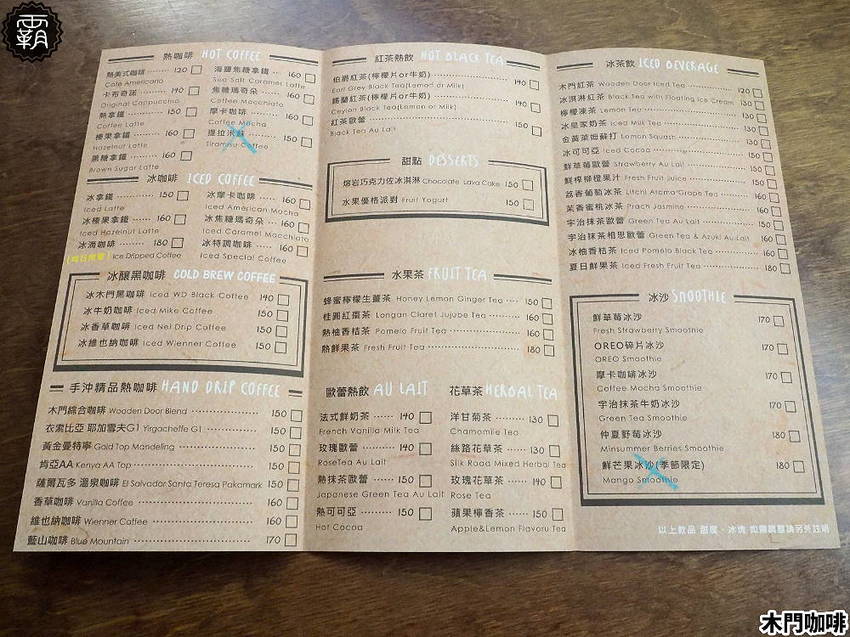 霸
熱咖啡 HOT COFFEE
熱美式咖啡 120
Cafe Americano
卡布奇諾 140
Original Cappuccino
熱拿鐵 150
Coffee Latte
榛果拿鐵 160
Hazelnut Latte
黑糖拿鐵 160
Brown Sugar Latte
海鹽焦糖拿鐵 160
Sea Salt Caramel Latte
焦糖瑪奇朵 160
Coffee Macchiato
摩卡咖啡 160
Coffee Mocha
提拉米蘇 150
Tiramisu Coffee
冰咖啡 ICED COFFEE
冰拿鐵 150
Iced Latte
冰榛果拿鐵 160
Iced Hazelnut Latte
冰滴咖啡 180
Ice Dripped Coffee
冰摩卡咖啡 160
Iced American Mocha
冰焦糖瑪奇朵 160
Iced Caramel Macchiato
冰特調咖啡 160
Iced Special Coffee
冰釀黑咖啡 COLD BREW COFFEE
冰木門黑咖啡 Iced WD Black Coffee 140
冰牛奶咖啡 Iced Mike Coffee 150
冰香草咖啡 Iced Nel Drip Coffee 150
冰維也納咖啡 Iced Wienner Coffee 150
手沖精品熱咖啡 HAND DRIP COFFEE
木門綜合咖啡 Wooden Door Blend 150
衣索比亞 耶加雪夫G1 Yirgacheffe G1 150
黃金曼特寧 Gold Top Mandeling 150
肯亞AA Kenya AA Top 150
薩爾瓦多 溫泉咖啡 El Salvador Santa Teresa Pakamark 150
香草咖啡 Vanilla Coffee 160
維也納咖啡 Wienner Coffee 160
藍山咖啡 Blue Mountain 170
紅茶熱飲 HOT BLACK TEA
伯爵紅茶(檸檬片or牛奶) 140
Earl Grey Black Tea(Lemon or Milk)
錫蘭紅茶(檸檬片or牛奶) 140
Ceylon Black Tea(Lemon or Milk)
紅茶歐蕾 150
Black Tea Au Lait
甜點 DESSERTS
熔岩巧克力佐冰淇淋 Chocolate Lava Cake 150
水果優格派對 Fruit Yogurt 150
水果茶 FRUIT TEA
蜂蜜檸檬生薑茶 Honey Lemon Ginger Tea 150
桂圓紅棗茶 Longan Claret Jujube Tea 160
熱柚香桔茶 Pomelo Fruit Tea 160
熱鮮果茶 Fresh Fruit Tea 180
歐蕾熱飲 AU LAIT
法式鮮奶茶 140
French Vanilla Milk Tea
玫瑰歐蕾 140
RoseTea Au Lait
熱抹茶歐蕾 150
Japanese Green Tea Au Lait
熱可可亞 150
Hot Cocoa
花草茶 HERBAL TEA
洋甘菊茶 130
Chamomile Tea
絲路花草茶 130
Silk Road Mixed Herbal Tea
玫瑰花草茶 140
Rose Tea
蘋果檸香茶 150
Apple&Lemon Flavoru Tea
冰茶飲 ICED BEVERAGE
木門紅茶 Wooden Door Iced Tea 120
冰淇淋紅茶 Black Tea with Floating Ice Cream 130
檸檬凍茶 Lemon Tea 130
冰皇家奶茶 Iced Milk Tea 130
金黃萊姆蘇打 Lemon Squash 130
冰可可亞 Iced Cocoa 150
鮮草莓歐蕾 Strawberry Au Lait 150
鮮榨柳橙果汁 Fresh Fruit Juice 150
荔香葡萄冰茶 Litchi Aroma Grape Tea 160
茉香蜜桃冰茶 Prach Jasmine 160
宇治抹茶歐蕾 Green Tea Au Lait 150
宇治抹茶相思歐蕾 Green Tea & Azuki Au Lait 160
冰柚香桔茶 Iced Pomelo Black Tea 160
夏日鮮果茶 Iced Fresh Fruit Tea 180
冰沙 SMOOTHIE
鮮草莓冰沙 170
Fresh Strawberry Smoothie
OREO碎片冰沙 170
OREO Smoothie
摩卡咖啡冰沙 170
Coffee Mocha Smoothie
宇治抹茶牛奶冰沙 170
Green Tea Smoothie
仲夏野莓冰沙 180
Minsummer Berries Smoothie
鮮芒果冰沙(季節限定) 180
Mango Smoothie
以上飲品 甜度、冰塊 如需調整請另外註明
木門咖啡